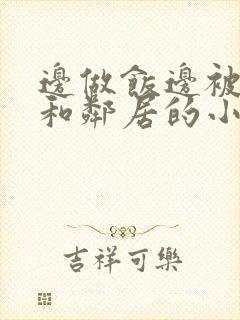 邊做飯邊被
和鄰居的小
吉祥可樂